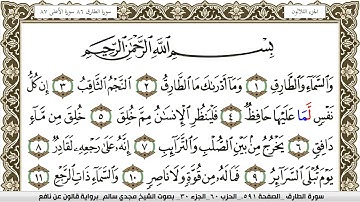 الجزء الثلاثون
سورة الطارق ٨٦ سورة الأعلى ٨٧
بِسْمِ اللَّهِ الرَّحْمَٰنِ الرَّحِيمِ
وَالسَّمَآءِ وَالطَّارِقِ ١ وَمَآ أَدْرَىٰكَ مَا الطَّارِقُ ٢ النَّجْمُ الثَّاقِبُ ٣ إِن كُلُّ
نَفْسٍ لَّمَا عَلَيْهَا حَافِظٌ ٤ فَلْيَنظُرِ الْإِنسَٰنُ مِمَّ خُلِقَ ٥ خُلِقَ مِن مَّآءٍ
دَافِقٍ ٦ يَخْرُجُ مِنۢ بَيْنِ الصُّلْبِ وَالتَّرَآئِبِ ٧ إِنَّهُ عَلَىٰ رَجْعِهِ لَقَادِرٌ ٨
يَوْمَ تُبْلَى السَّرَآئِرُ ٩ فَمَا لَهُ مِن قُوَّةٍ وَلَا نَاصِرٍ ١٠ وَالسَّمَآءِ ذَاتِ الرَّجْعِ ١١
سورة الطارق الصفحة ٥٩١ الحزب ٦٠ الجزء ٣٠ بصوت الشيخ مجدي سالم برواية قالون عن نافع